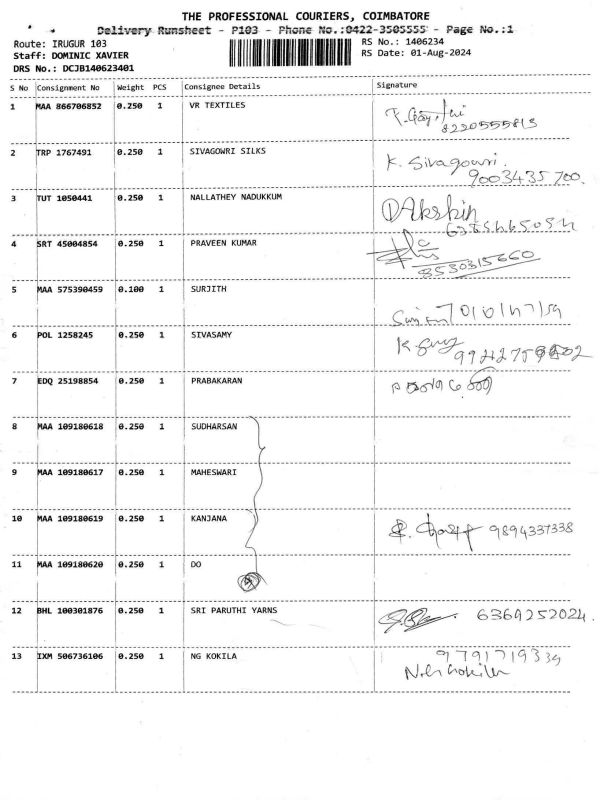 THE PROFESSIONAL COURIERS, COIMBATORE
Delivery Runsheet - P103 - Phone No.:0422-3505555 - Page No.:1
Route: IRUGUR 103
RS No.: 1406234
Staff: DOMINIC XAVIER
RS Date: 01-Aug-2024
DRS No.: DCJB140623401
S No Consignment No Weight PCS Consignee Details Signature
1 MAA 866706852 0.250 1 VR TEXTILES
8220555813
2 TRP 1767491 0.250 1 SIVAGOWRI SILKS K. Sivagowri.
9003435700.
3 TUT 1050441 0.250 1 NALLATHEY NADUKKUM DAkshin
4 SRT 45004854 0.250 1 PRAVEEN KUMAR
8530315660
5 MAA 575390459 0.100 1 SURJITH
6 POL 1258245 0.250 1 SIVASAMY
7 EDQ 25198854 0.250 1 PRABAKARAN
8 MAA 109180618 0.250 1 SUDHARSAN
9 MAA 109180617 0.250 1 MAHESWARI
10 MAA 109180619 0.250 1 KANJANA 9894337338
11 MAA 109180620 0.250 1 DO
4
12 BHL 100301876 0.250 1 SRI PARUTHI YARNS 6369252024.
13 IXM 506736106 0.250 1 NG KOKILA 9791719339
N.G Kokila